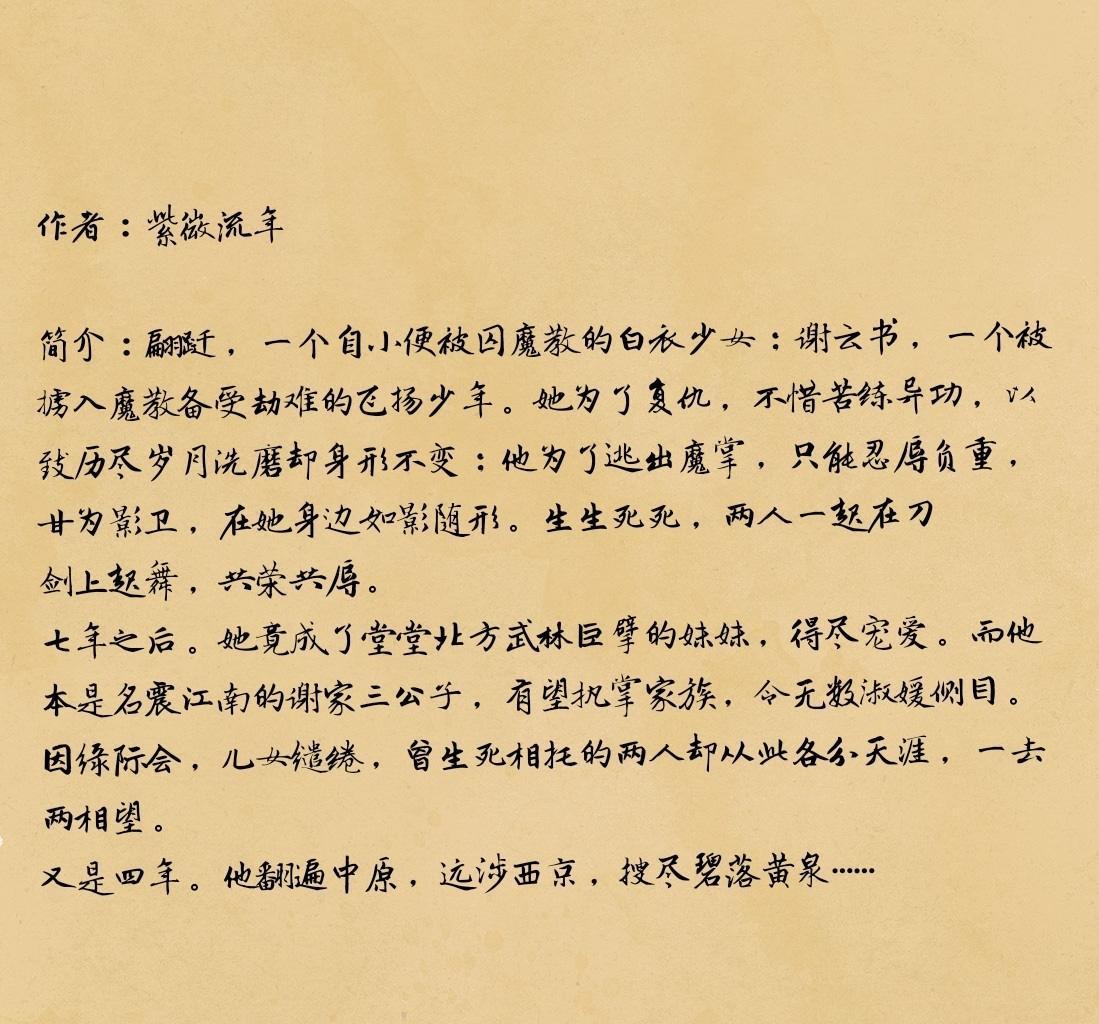 作者：紫微流年
简介：翩跹，一个自小便被囚魔教的白衣少女；谢云书，一个被
掳入魔教备受劫难的飞扬少年。她为了复仇，不惜苦练异功，以
致历尽岁月洗磨却身形不变；他为了逃出魔掌，只能忍辱负重，
甘为影卫，在她身边如影随形。生生死死，两人一起在刀
剑上起舞，共荣共辱。
七年之后。她竟成了堂堂北方武林巨擘的妹妹，得尽宠爱。而他
本是名震江南的谢家三公子，有望执掌家族，令无数淑媛侧目。
因缘际会，儿女缱绻，曾生死相托的两人却从此各分天涯，一去
两相望。
又是四年。他翻遍中原，远涉西京，搜尽碧落黄泉……